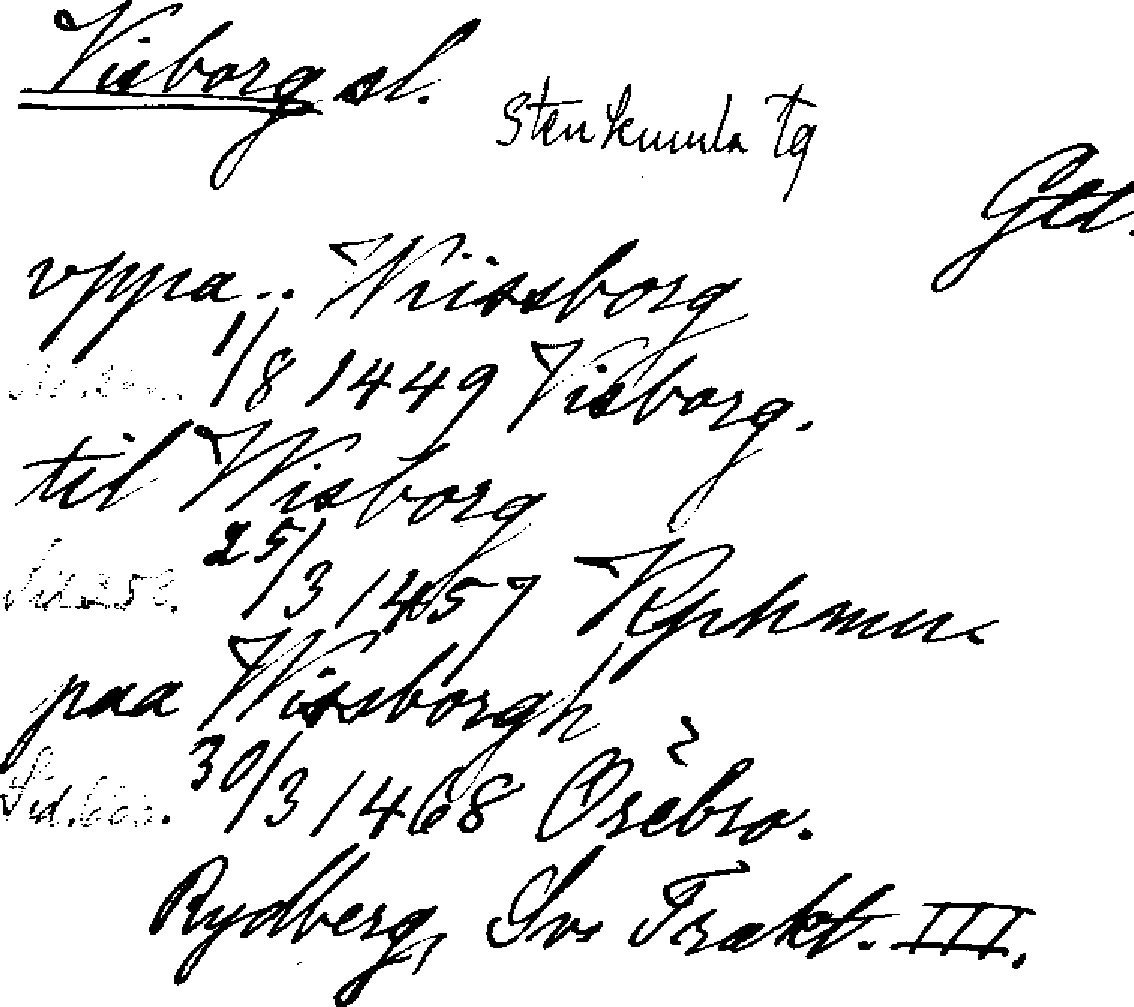 Visborg sl.
Stenkumla tg
Gtl.
vppa .. Wiissborg
1/8 1449 Visborg.
til Wisborg
25/3 1457 Kphmn.
paa Wissborgh
30/3 1468 Örebro.
Rydberg, Sv. Trakt. III.